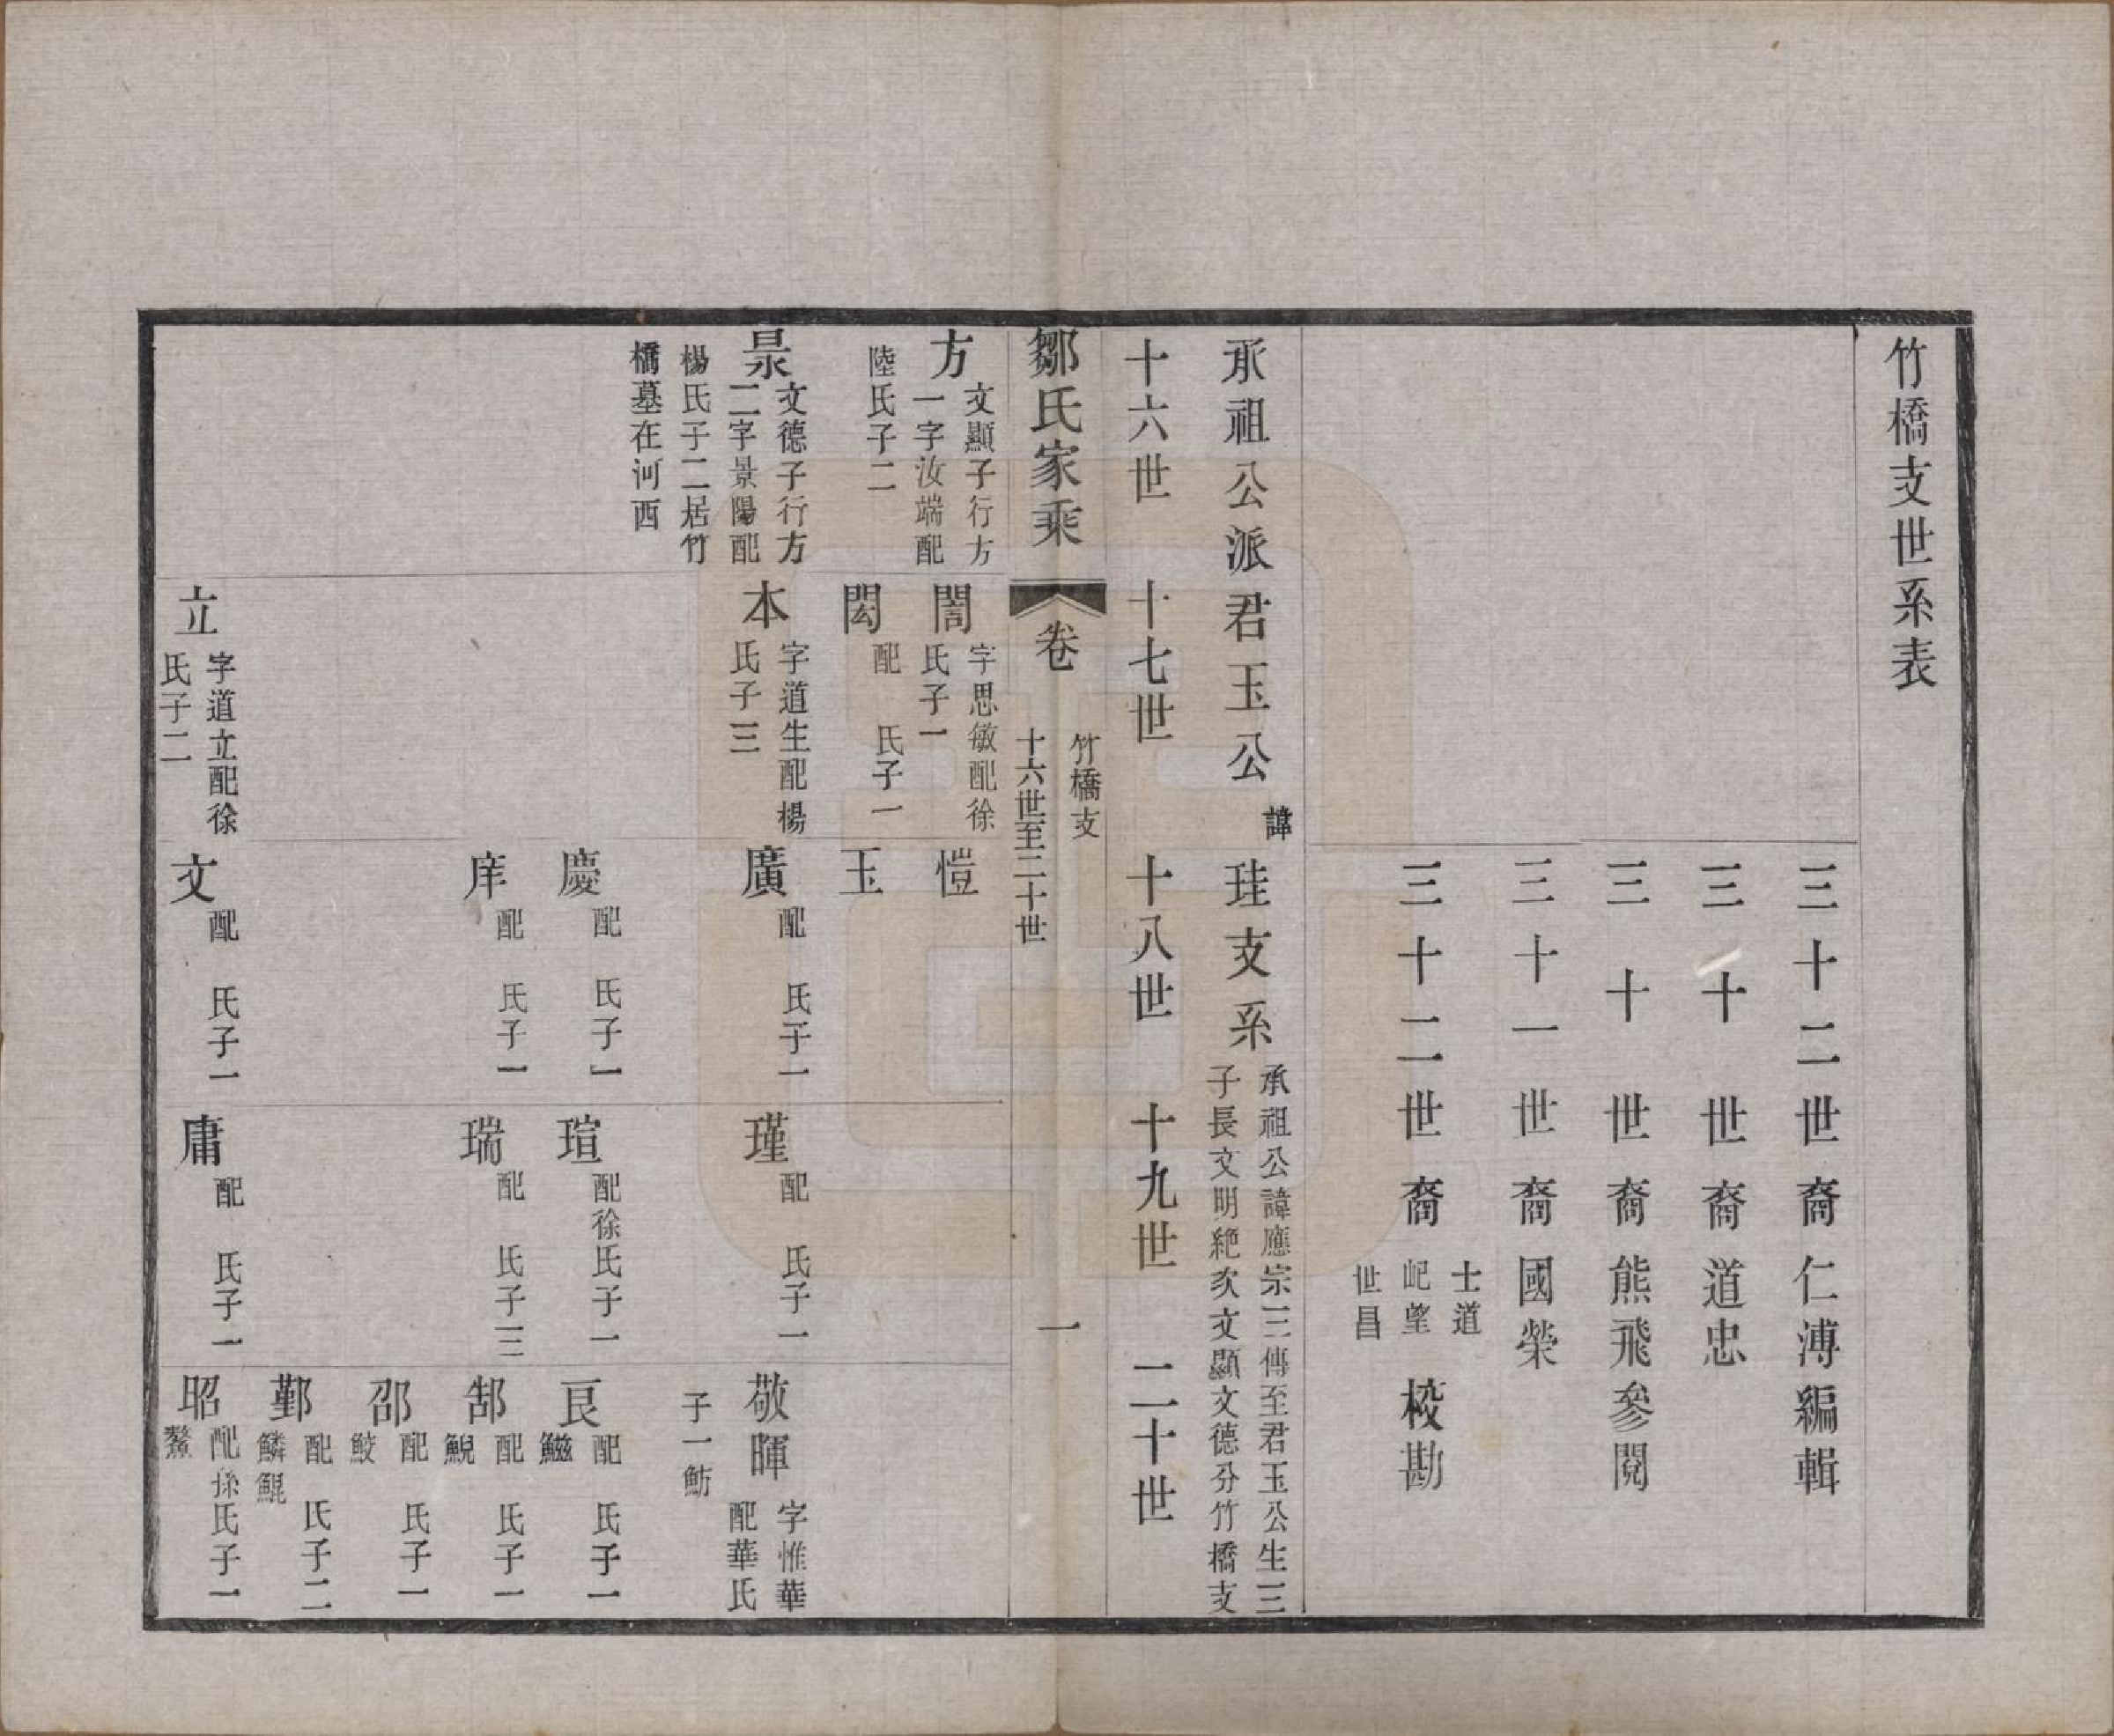 竹橋支世系表
三十二世裔仁溥編輯
三十世裔道忠
三十世裔熊飛參閱
三十一世裔國榮
三十二世裔士道屺望世昌校勘
承祖公派君玉公諱珪支系
承祖公諱應宗三傳至君玉公生三
子長文明絶次文顯文德分竹橋支
十六世 十七世 十八世 十九世 二十世
鄒氏家乘 卷 竹橋支 十六世至二十世 一
方
文顯子行方
一字汝端配
陸氏子二
誾
字思敏配徐
氏子一
愷
閎
配 氏子一
玉
景
文德子行方
二字景陽配
楊氏子二居竹
橋墓在河西
本
字道生配楊
氏子三
廣
配 氏子一
瑾
配 氏子一
敬暉
字惟華
配華氏
子一魴
慶
配 氏子一
瑄
配徐氏子一
艮
配 氏子一
鰦
庠
配 氏子一
瑞
配 氏子三
郜
配 氏子一
鯢
邵
配 氏子一
鮫
鄞
配 氏子二
鱗鯤
立
字道立配徐
氏子二
文
配 氏子一
庸
配 氏子一
昭
配孫氏子一
鰲